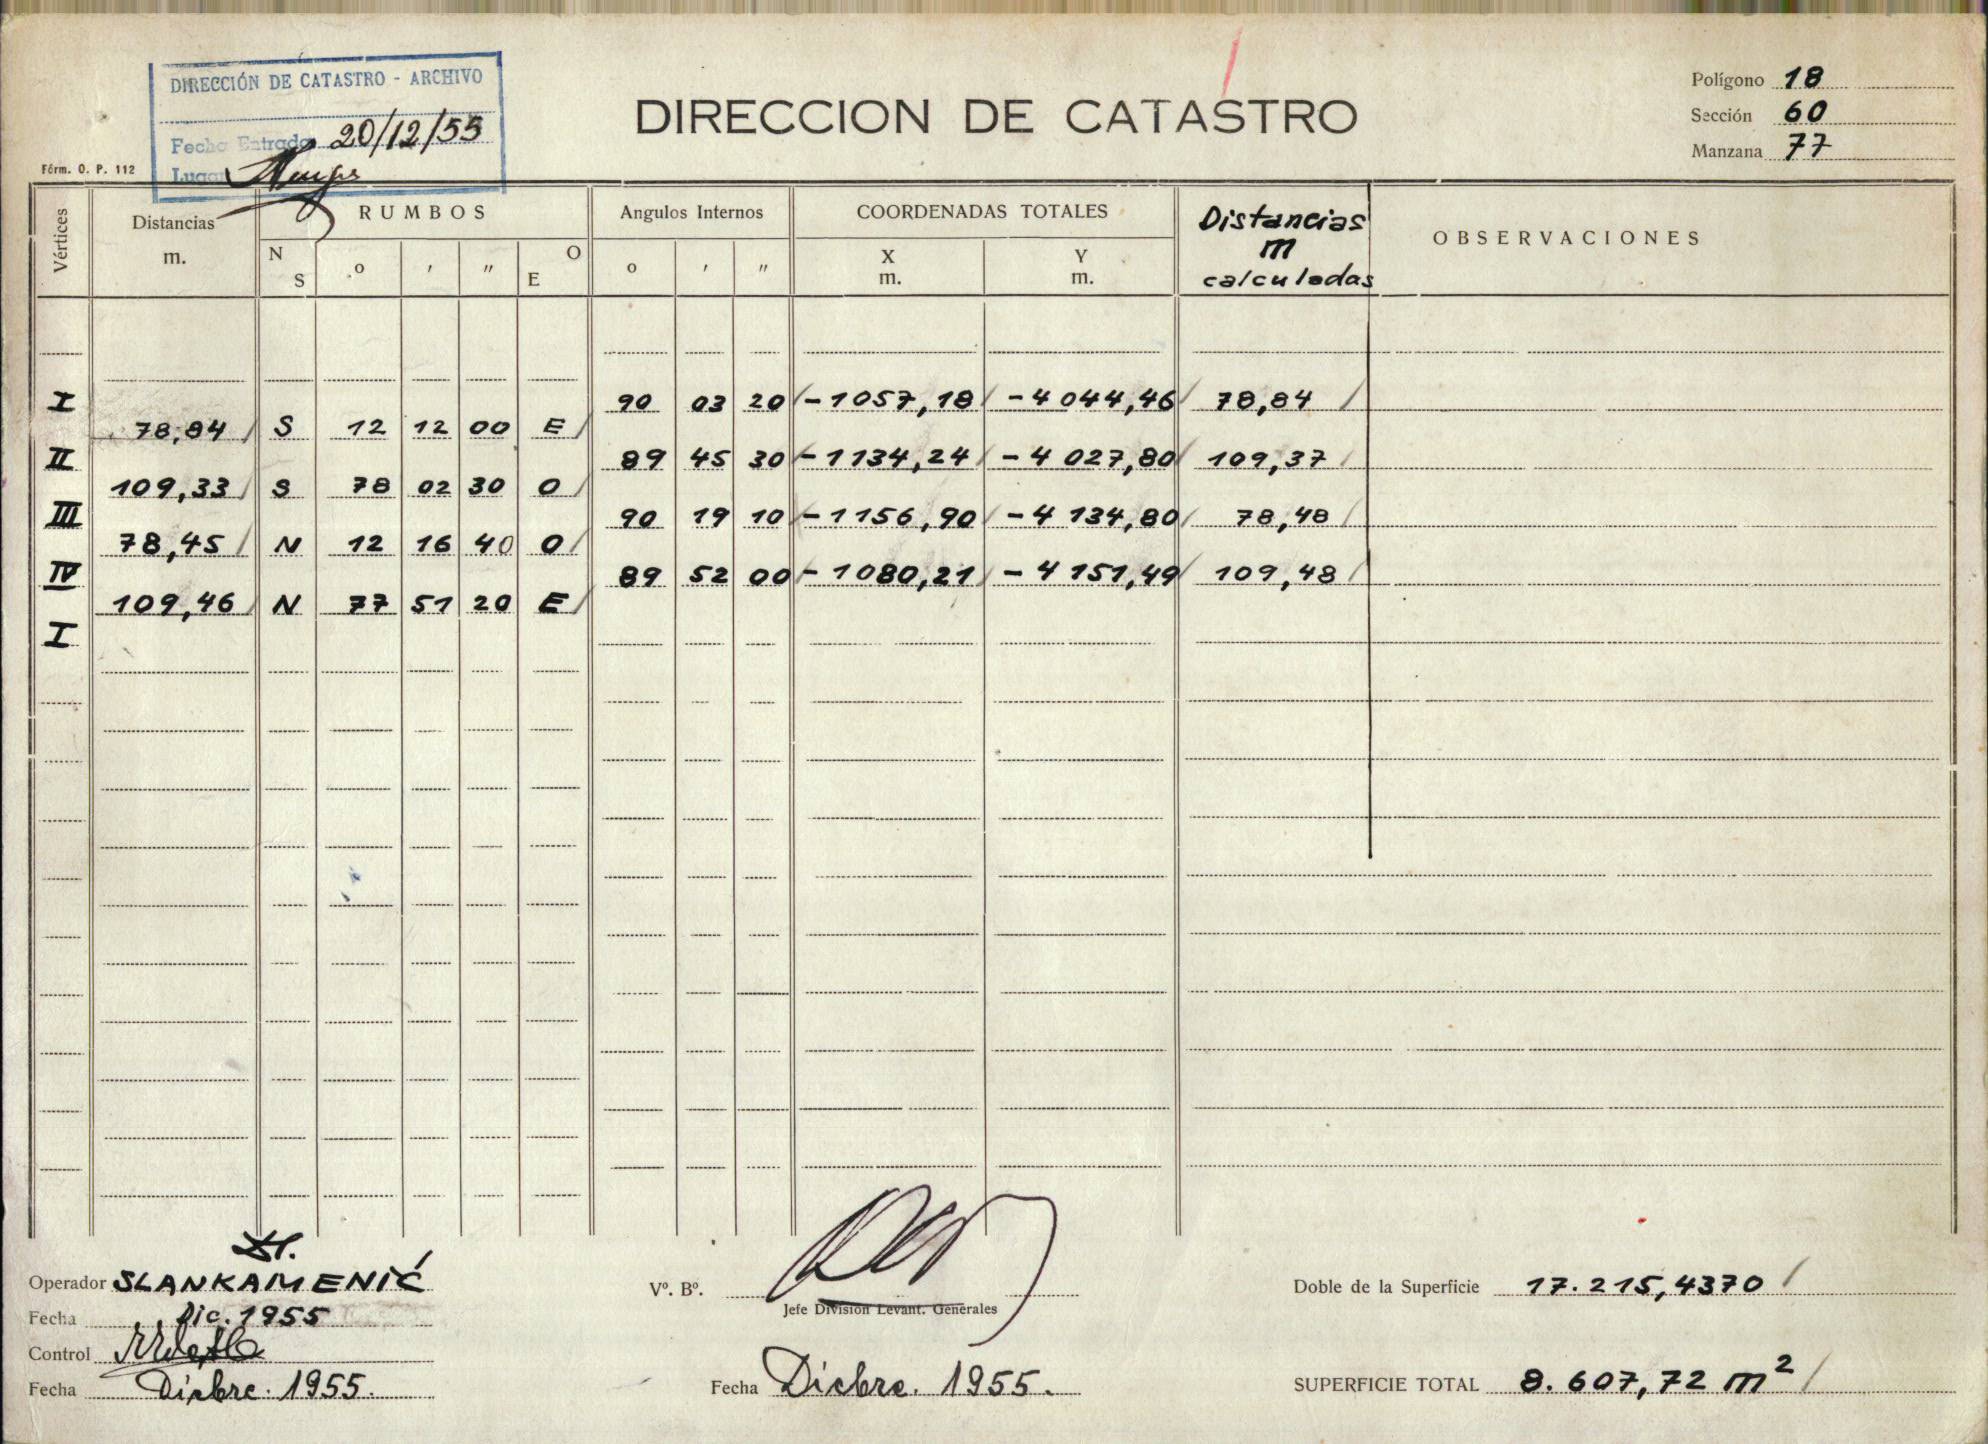 DIRECCIÓN DE CATASTRO - ARCHIVO
Fecha Entrada 20/12/55
Lugar
Fórm. O. P. 112
DIRECCION DE CATASTRO
Polígono 18
Sección 60
Manzana 77
Vértices Distancias m. RUMBOS Angulos Internos COORDENADAS TOTALES Distancias m calculadas OBSERVACIONES
N S o ′ ″ O E o ′ ″ X m. Y m.
I 90 03 20 -1057,18 -4044,46 78,84
78,84 S 12 12 00 E
II 89 45 30 -1134,24 -4027,80 109,37
109,33 S 78 02 30 O
III 90 19 10 -1156,90 -4134,80 78,48
78,45 N 12 16 40 O
IV 89 52 00 -1080,21 -4151,49 109,48
109,46 N 77 51 20 E
I
Operador SLANKAMENIĆ
Fecha Dic. 1955
Control
Fecha Dicbre. 1955.
Vº. Bº.
Jefe División Levant. Generales
Fecha Dicbre. 1955.
Doble de la Superficie 17.215,4370
SUPERFICIE TOTAL 8.607,72 m²